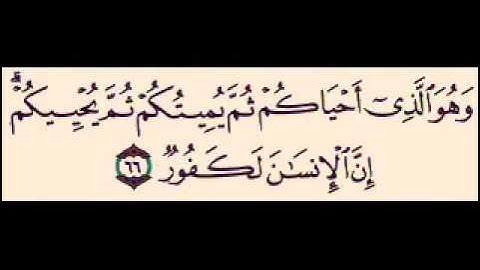 وَهُوَ ٱلَّذِىٓ أَحْيَاكُمْ ثُمَّ يُمِيتُكُمْ ثُمَّ يُحْيِيكُمْ ۗ
إِنَّ ٱلْإِنسَـٰنَ لَكَفُورٌ ٦٦